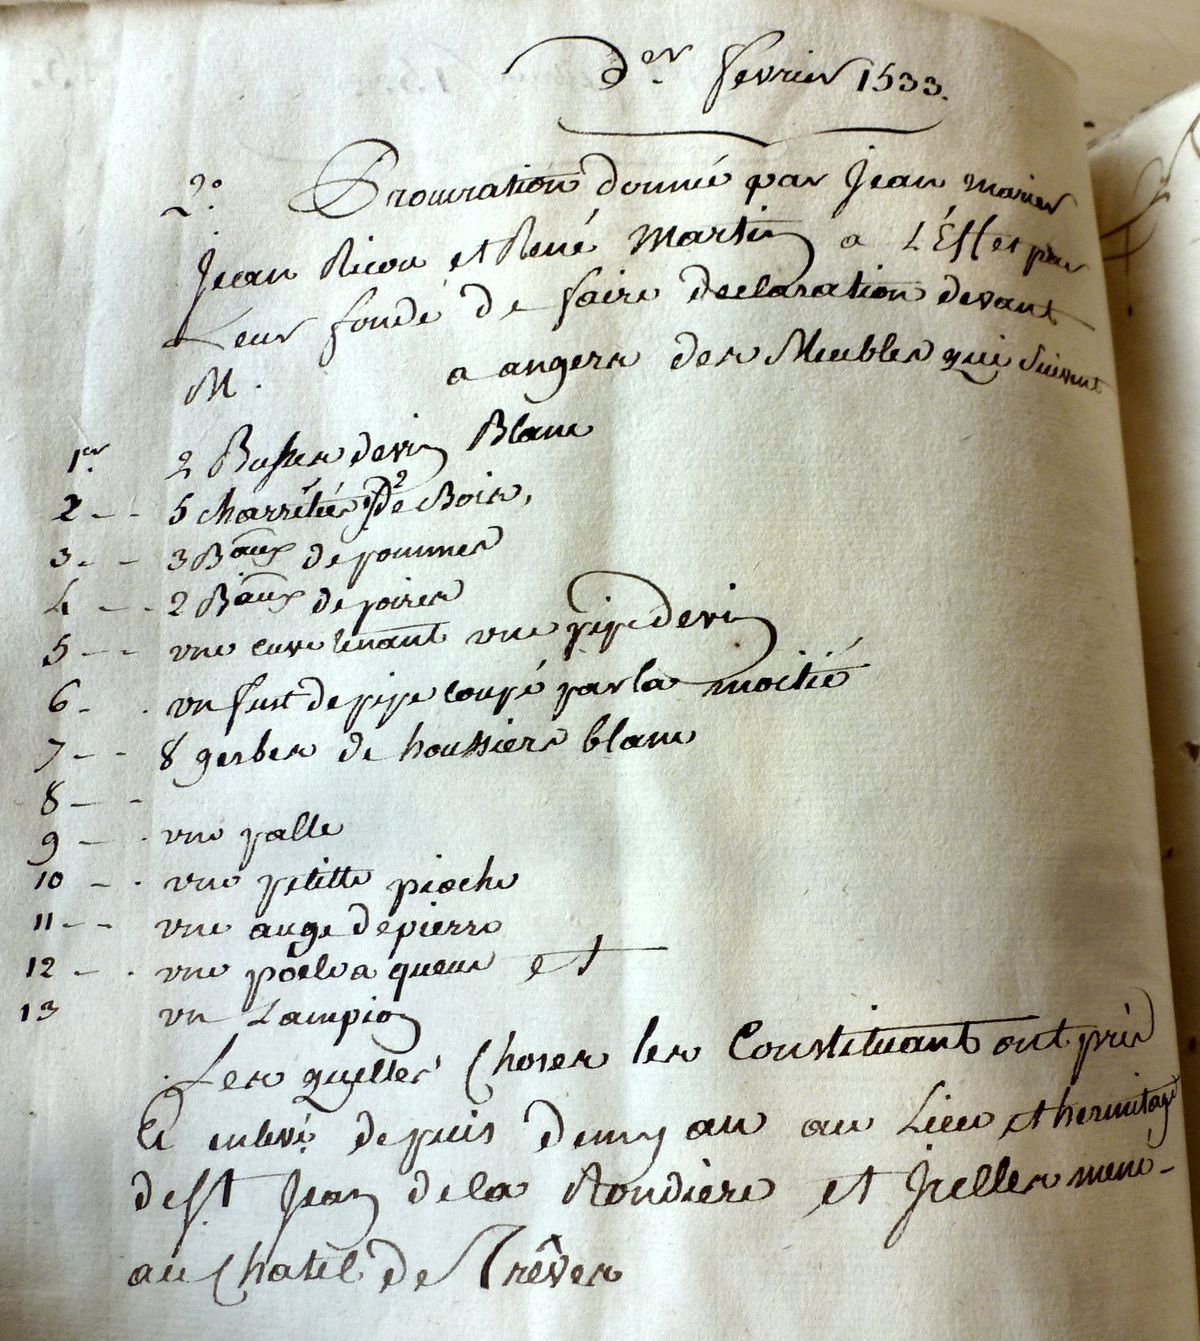 der fevrier 1533.
2o. Procuration donnée par Jean Marier
Jean Ricou et René Martin a L'Effet par
Leur fondé de faire declaration devant
M. a angers des Meubles qui Suivent
1er. 2 Busses de vin Blanc
2 - - 5 charretées de Bois,
3. - - 3 Baux de pommes
4 - - . 2 Baux de poires
5 - - - une cuve tenant une pipe de vin
6 - . un fust de pipe coupé par la moitié
7 - - 8 gerbes de houssiers blanc
8 - -
9 - . une palle
10 - . une petitte pioche
11 - - une auge de pierre
12 - . une poële a queue et
13 un Lampion
Les quelles Choses les Constituant ont pris
Et enlevé depuis demy an au Lieu et hermitage
de St Jean de la Rondiere et Jcelles mené -
au Chatel de Trêves